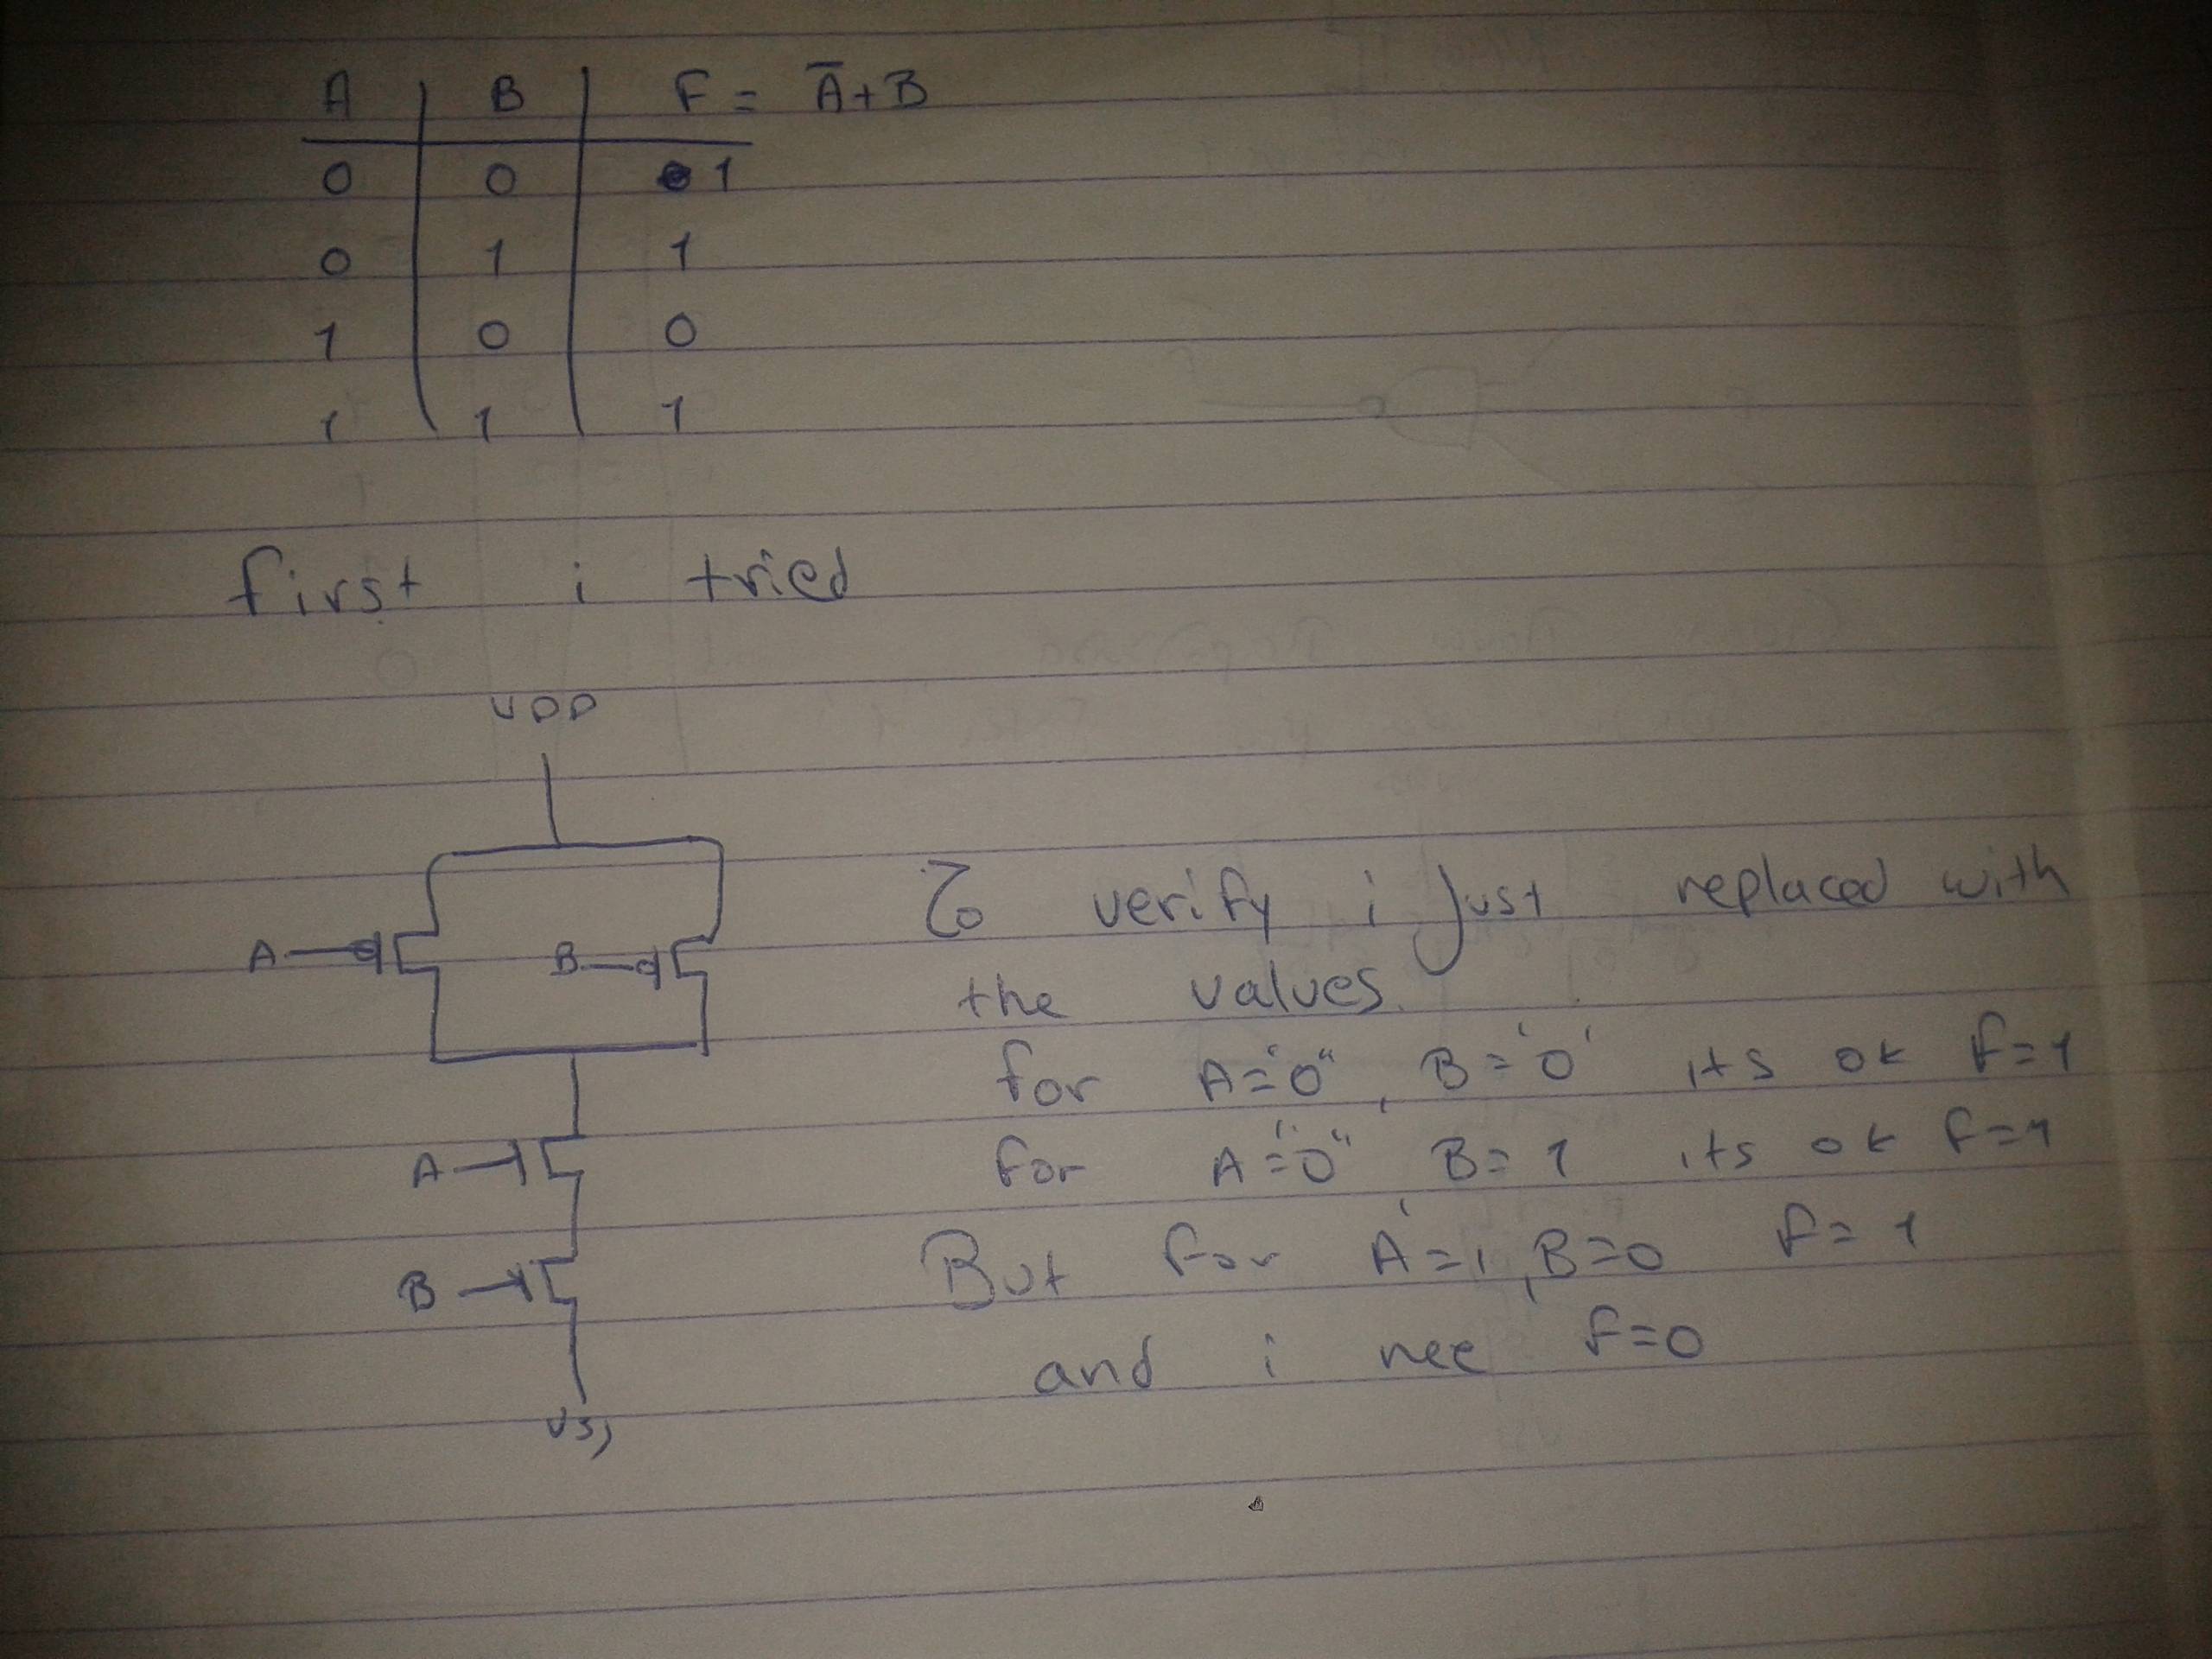 A B F = A̅+B
0 0 1
0 1 1
1 0 0
1 1 1
first i tried
VDD
A B
A
B
To verify i Just replaced with
the values.
for A="0", B='0' its ok F=1
for A="0" B=1 its ok F=1
But for A=1, B=0 F=1
and i nee F=0